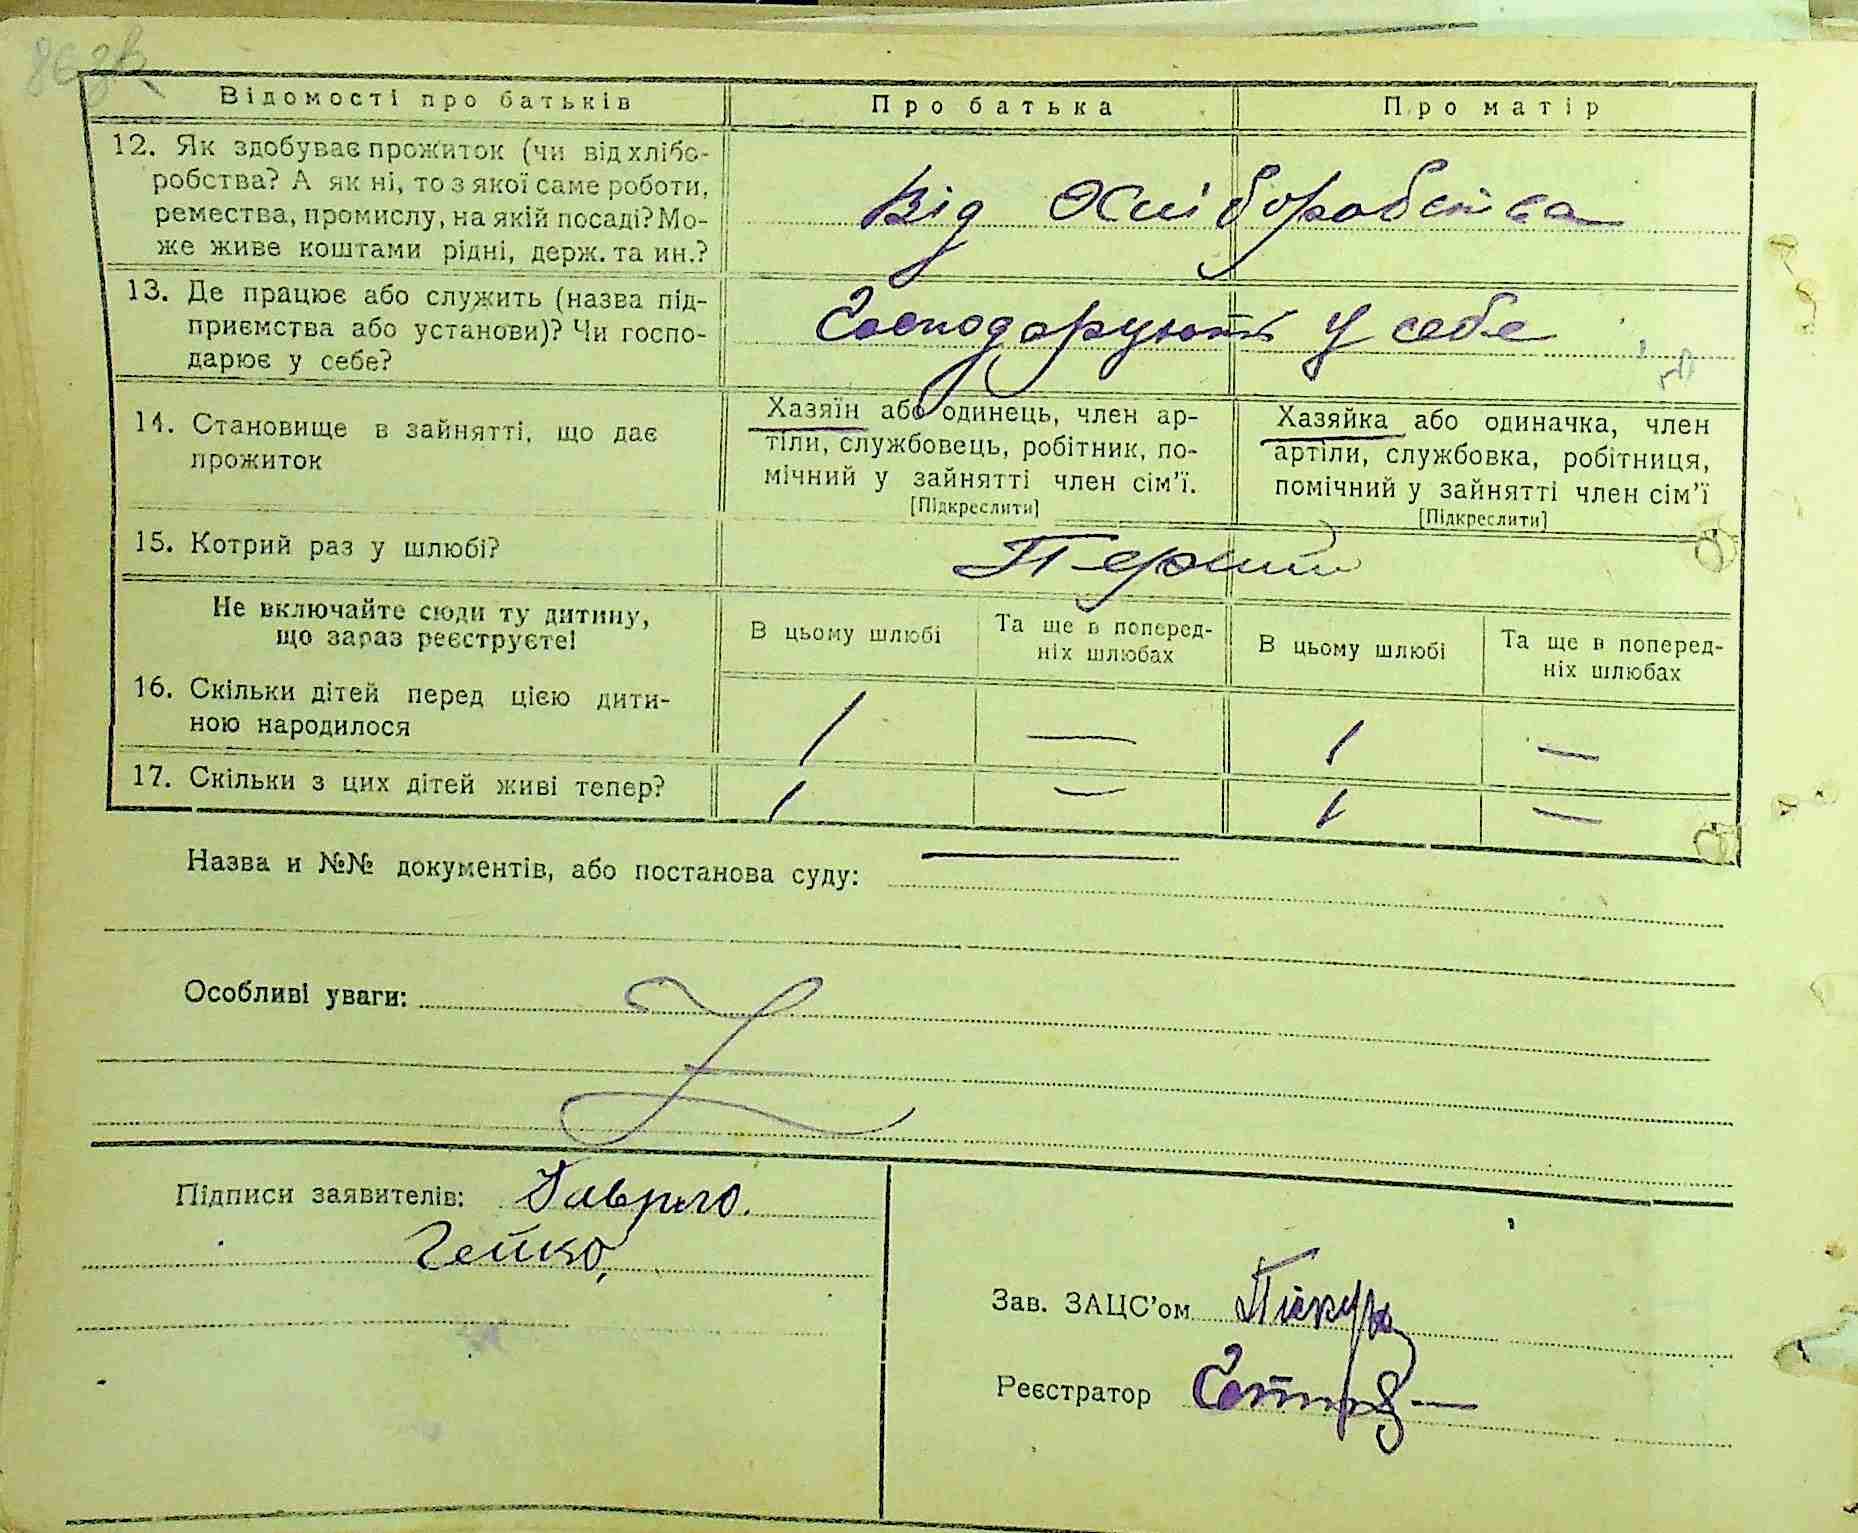 86 зв
Відомості про батьків
Про батька
Про матір
12. Як здобуває прожиток (чи від хлібо-
робства? А як ні, то з якої саме роботи,
ремества, промислу, на якій посаді? Мо-
же живе коштами рідні, держ. та ин.?
Від Хліборобства
13. Де працює або служить (назва під-
приємства або установи)? Чи госпо-
дарює у себе?
Господарують у себе
14. Становище в зайнятті, що дає
прожиток
Хазяїн або одинець, член ар-
тіли, службовець, робітник, по-
мічний у зайнятті член сім'ї.
[Підкреслити]
Хазяйка або одиначка, член
артіли, службовка, робітниця,
помічний у зайнятті член сім'ї
[Підкреслити]
15. Котрий раз у шлюбі?
Перший
Не включайте сюди ту дитину,
що зараз реєструєте!
В цьому шлюбі
Та ще в поперед-
ніх шлюбах
В цьому шлюбі
Та ще в поперед-
ніх шлюбах
16. Скільки дітей перед цією дити-
ною народилося
1 — 1 —
17. Скільки з цих дітей живі тепер?
1 — 1 —
Назва и №№ документів, або постанова суду: —
Особливі уваги:
Підписи заявителів: Гаврило.
Гейко,
Зав. ЗАЦС'ом
Реєстратор